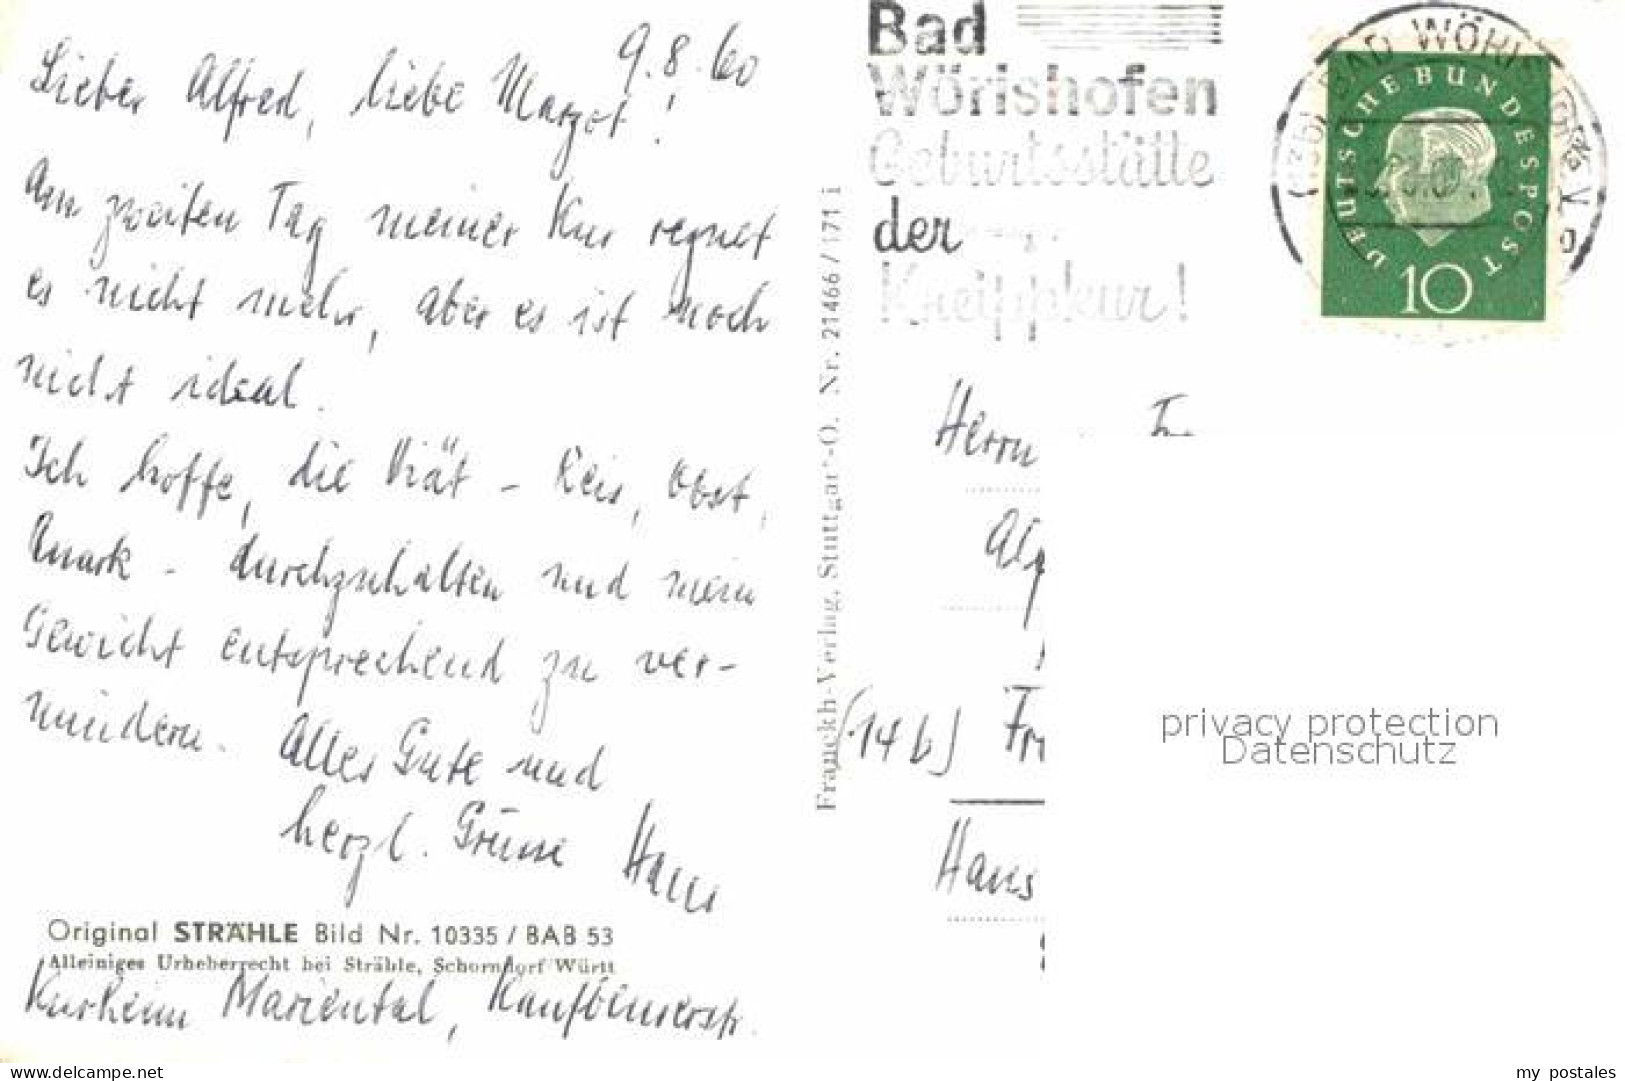 9.8.60
Lieber Alfred, liebe Margot!
Am zweiten Tag meiner Kur regnet
es nicht mehr, aber es ist noch
nicht ideal.
Ich hoffe, die Diät - Reis, Obst,
Quark - durchzuhalten und mein
Gewicht entsprechend zu ver-
mindern. Alles Gute und
herzl. Grüsse Hans
Original STRÄHLE Bild Nr. 10335 / BAB 53
Alleiniges Urheberrecht bei Strähle, Schorndorf/Württ
Kurheim Mariental, Kaufbeurerstr.
Franckh-Verlag, Stuttgart-O. Nr. 21466/171 i
Bad
Wörishofen
Geburtsstätte
der
Kneippkur!
BAD WÖRISHOFEN
DEUTSCHE BUNDESPOST
10
Herrn
(14b) Fr
Haus
privacy protection
Datenschutz
www.delcampe.net
my_postales